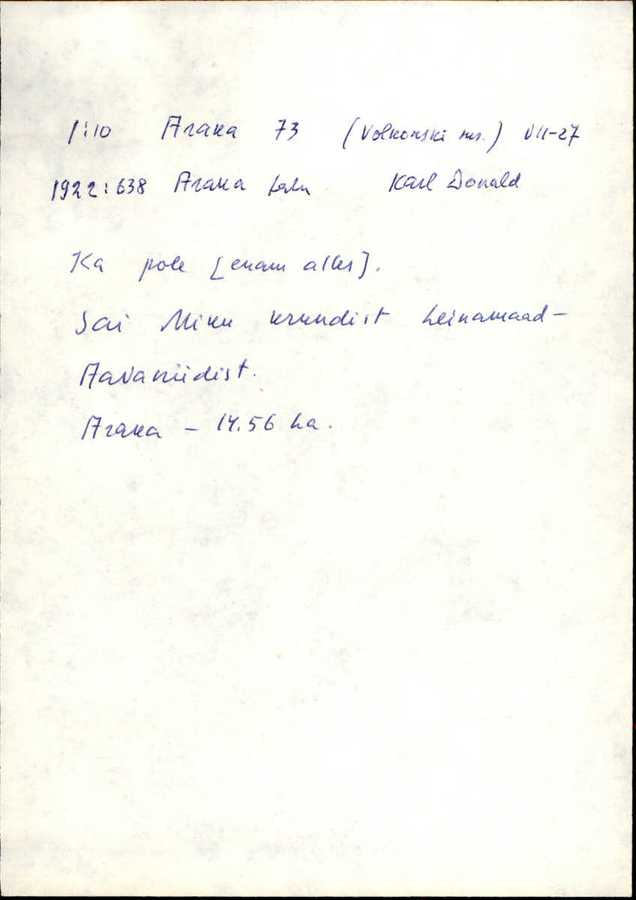 1:10 Araka 73 (Volkonski ms.) VII-27
1922:638 Araka talu Karl Donald
Ka pole [enam alles].
Sai Miku krundist heinamaad –
Aavaniidist.
Araka – 14.56 ha.